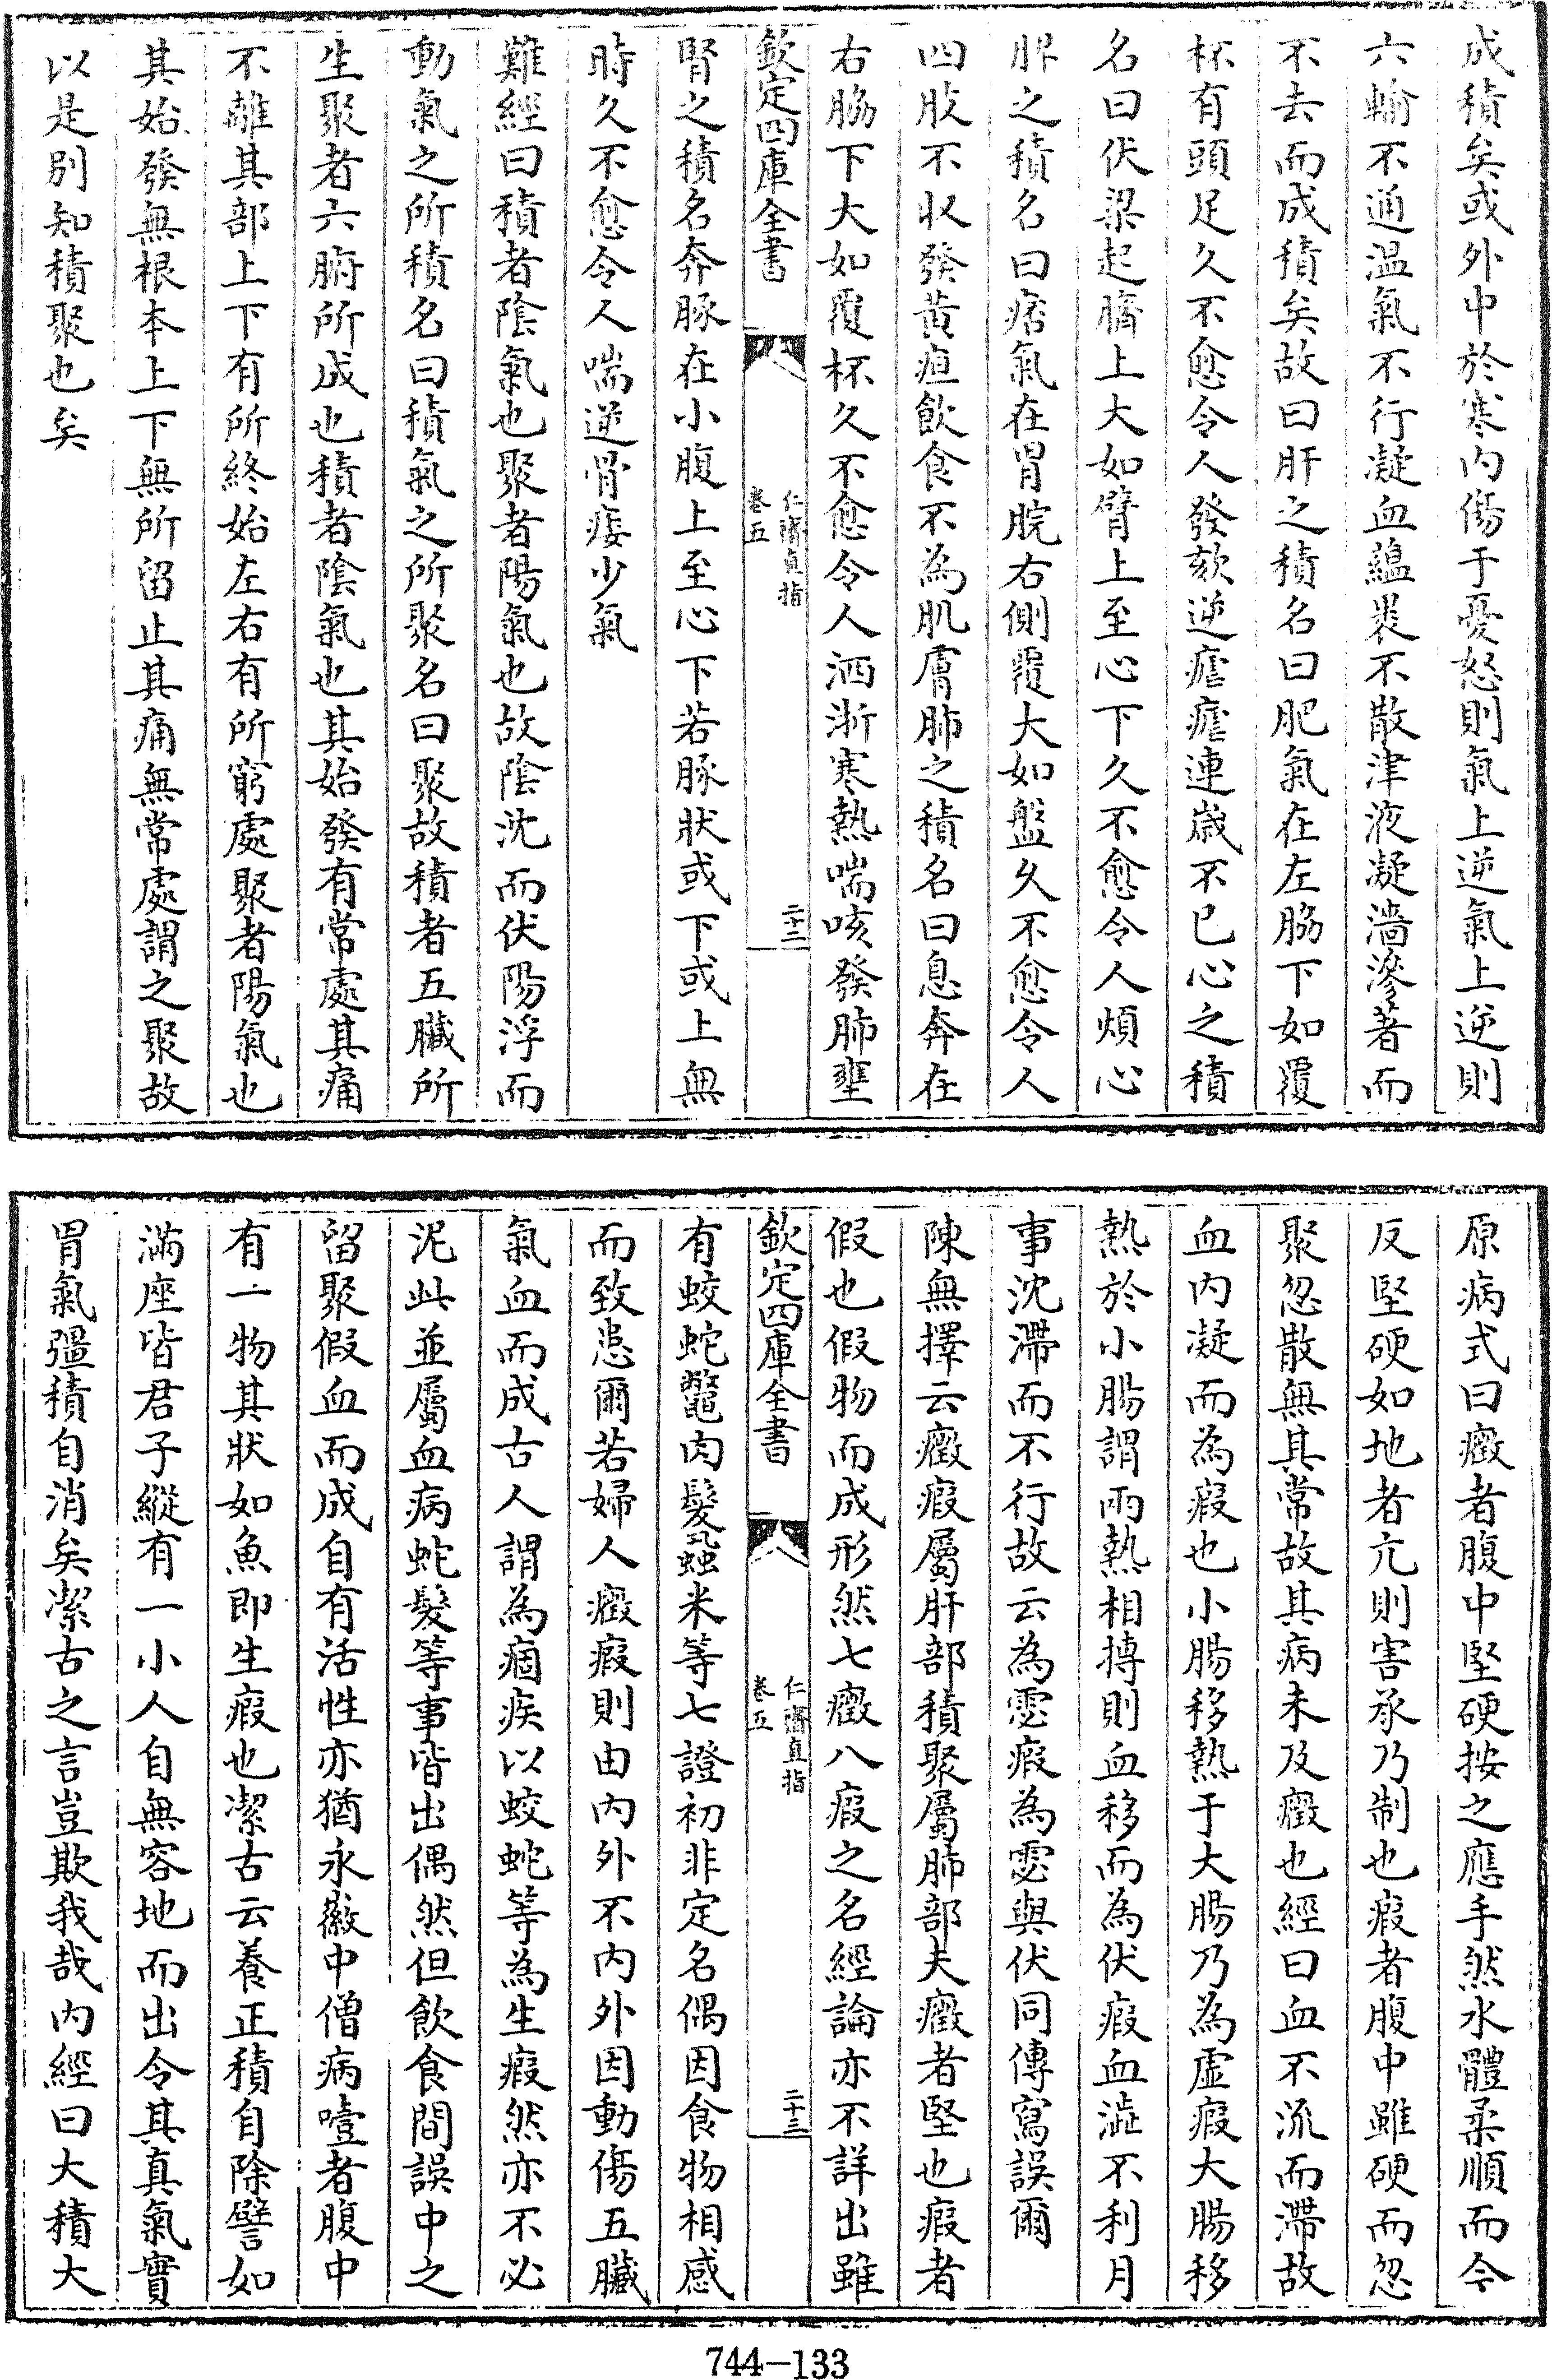 成積矣或外中於寒内傷于憂怒則氣上逆氣上逆則
六輸不通温氣不行凝血蘊裹不散津液凝濇滲著而
不去而成積矣故曰肝之積名曰肥氣在左脇下如覆
杯有頭足久不愈令人發欬逆瘧瘧連歲不已心之積
名曰伏梁起臍上大如臂上至心下久不愈令人煩心
脾之積名曰痞氣在胃脘右側覆大如盤久不愈令人
四肢不收發黃疸飲食不為肌膚肺之積名曰息奔在
右脇下大如覆杯久不愈令人洒淅寒熱喘咳發肺壅
欽定四庫全書
仁齋直指
卷五
二十二
腎之積名奔豚在小腹上至心下若豚狀或下或上無
時久不愈令人喘逆骨痿少氣
難經曰積者陰氣也聚者陽氣也故陰沈而伏陽浮而
動氣之所積名曰積氣之所聚名曰聚故積者五臟所
生聚者六腑所成也積者陰氣也其始發有常處其痛
不離其部上下有所終始左右有所窮處聚者陽氣也
其始發無根本上下無所留止其痛無常處謂之聚故
以是別知積聚也矣
原病式曰癥者腹中堅硬按之應手然水體柔順而今
反堅硬如地者亢則害承乃制也瘕者腹中雖硬而忽
聚忽散無其常故其病未及癥也經曰血不流而滯故
血内凝而為瘕也小腸移熱于大腸乃為虙瘕大腸移
熱於小腸謂兩熱相搏則血移而為伏瘕血澁不利月
事沈滯而不行故云為虙瘕為虙與伏同傳寫誤爾
陳無擇云癥瘕屬肝部積聚屬肺部夫癥者堅也瘕者
假也假物而成形然七癥八瘕之名經論亦不詳出雖
欽定四庫全書
仁齋直指
卷五
二十三
有蛟蛇鼈肉髮蝨米等七證初非定名偶因食物相感
而致患爾若婦人癥瘕則由内外不内外因動傷五臟
氣血而成古人謂為痼疾以蛟蛇等為生瘕然亦不必
泥此並屬血病蛇髮等事皆出偶然但飲食間誤中之
留聚假血而成自有活性亦猶永徽中僧病噎者腹中
有一物其狀如魚即生瘕也潔古云養正積自除譬如
滿座皆君子縱有一小人自無容地而出令其真氣實
胃氣彊積自消矣潔古之言豈欺我哉内經曰大積大
744-133